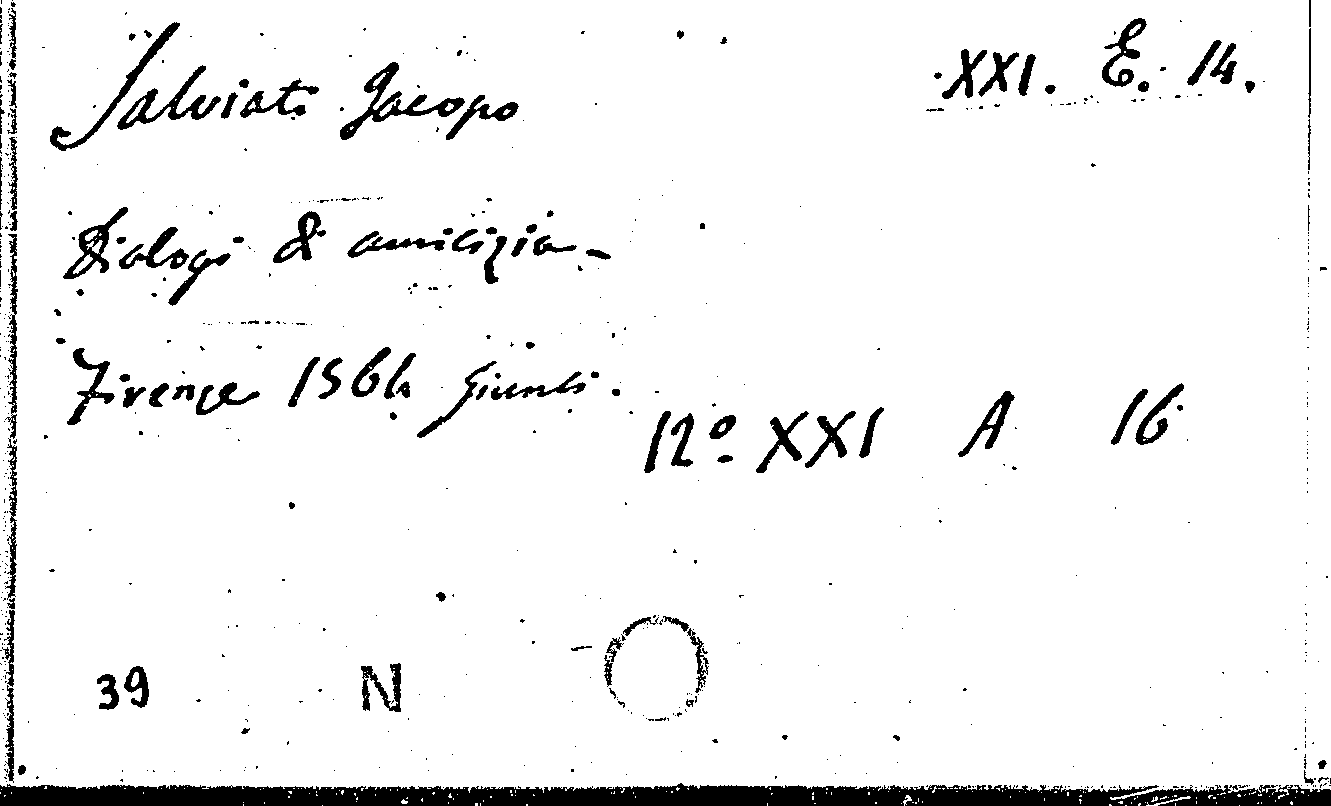 Salviati Jacopo
XXI. E. 14.
Dialogi di amicizia -
Firenze 1564 Giunti.
12º XXI A 16
39 N